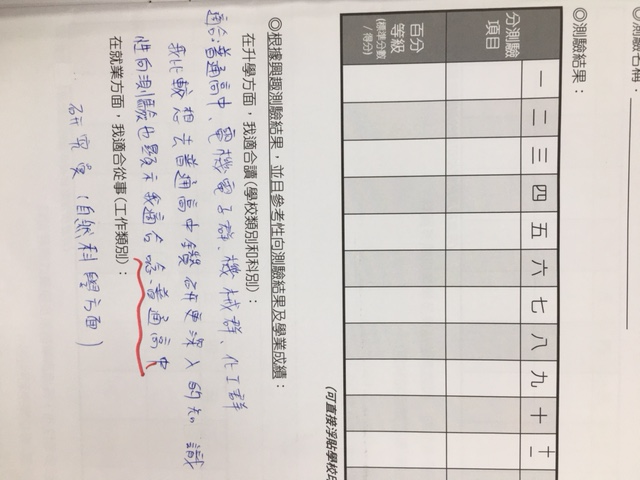 測驗名稱：
◎測驗結果：
分測驗項目 一 二 三 四 五 六 七 八 九 十 十一
百分等級(標準分數/得分)
(可直接浮貼學校
◎根據興趣測驗結果，並且參考性向測驗結果及學業成績：
在升學方面，我適合讀(學校類別和科別)：
適合:普通高中、電機電子群、機械群、化工群
我比較想去普通高中鑽研更深入的知識
性向測驗也顯示我適合念普通高中
在就業方面，我適合從事(工作類別)：
研究員(自然科學方面)